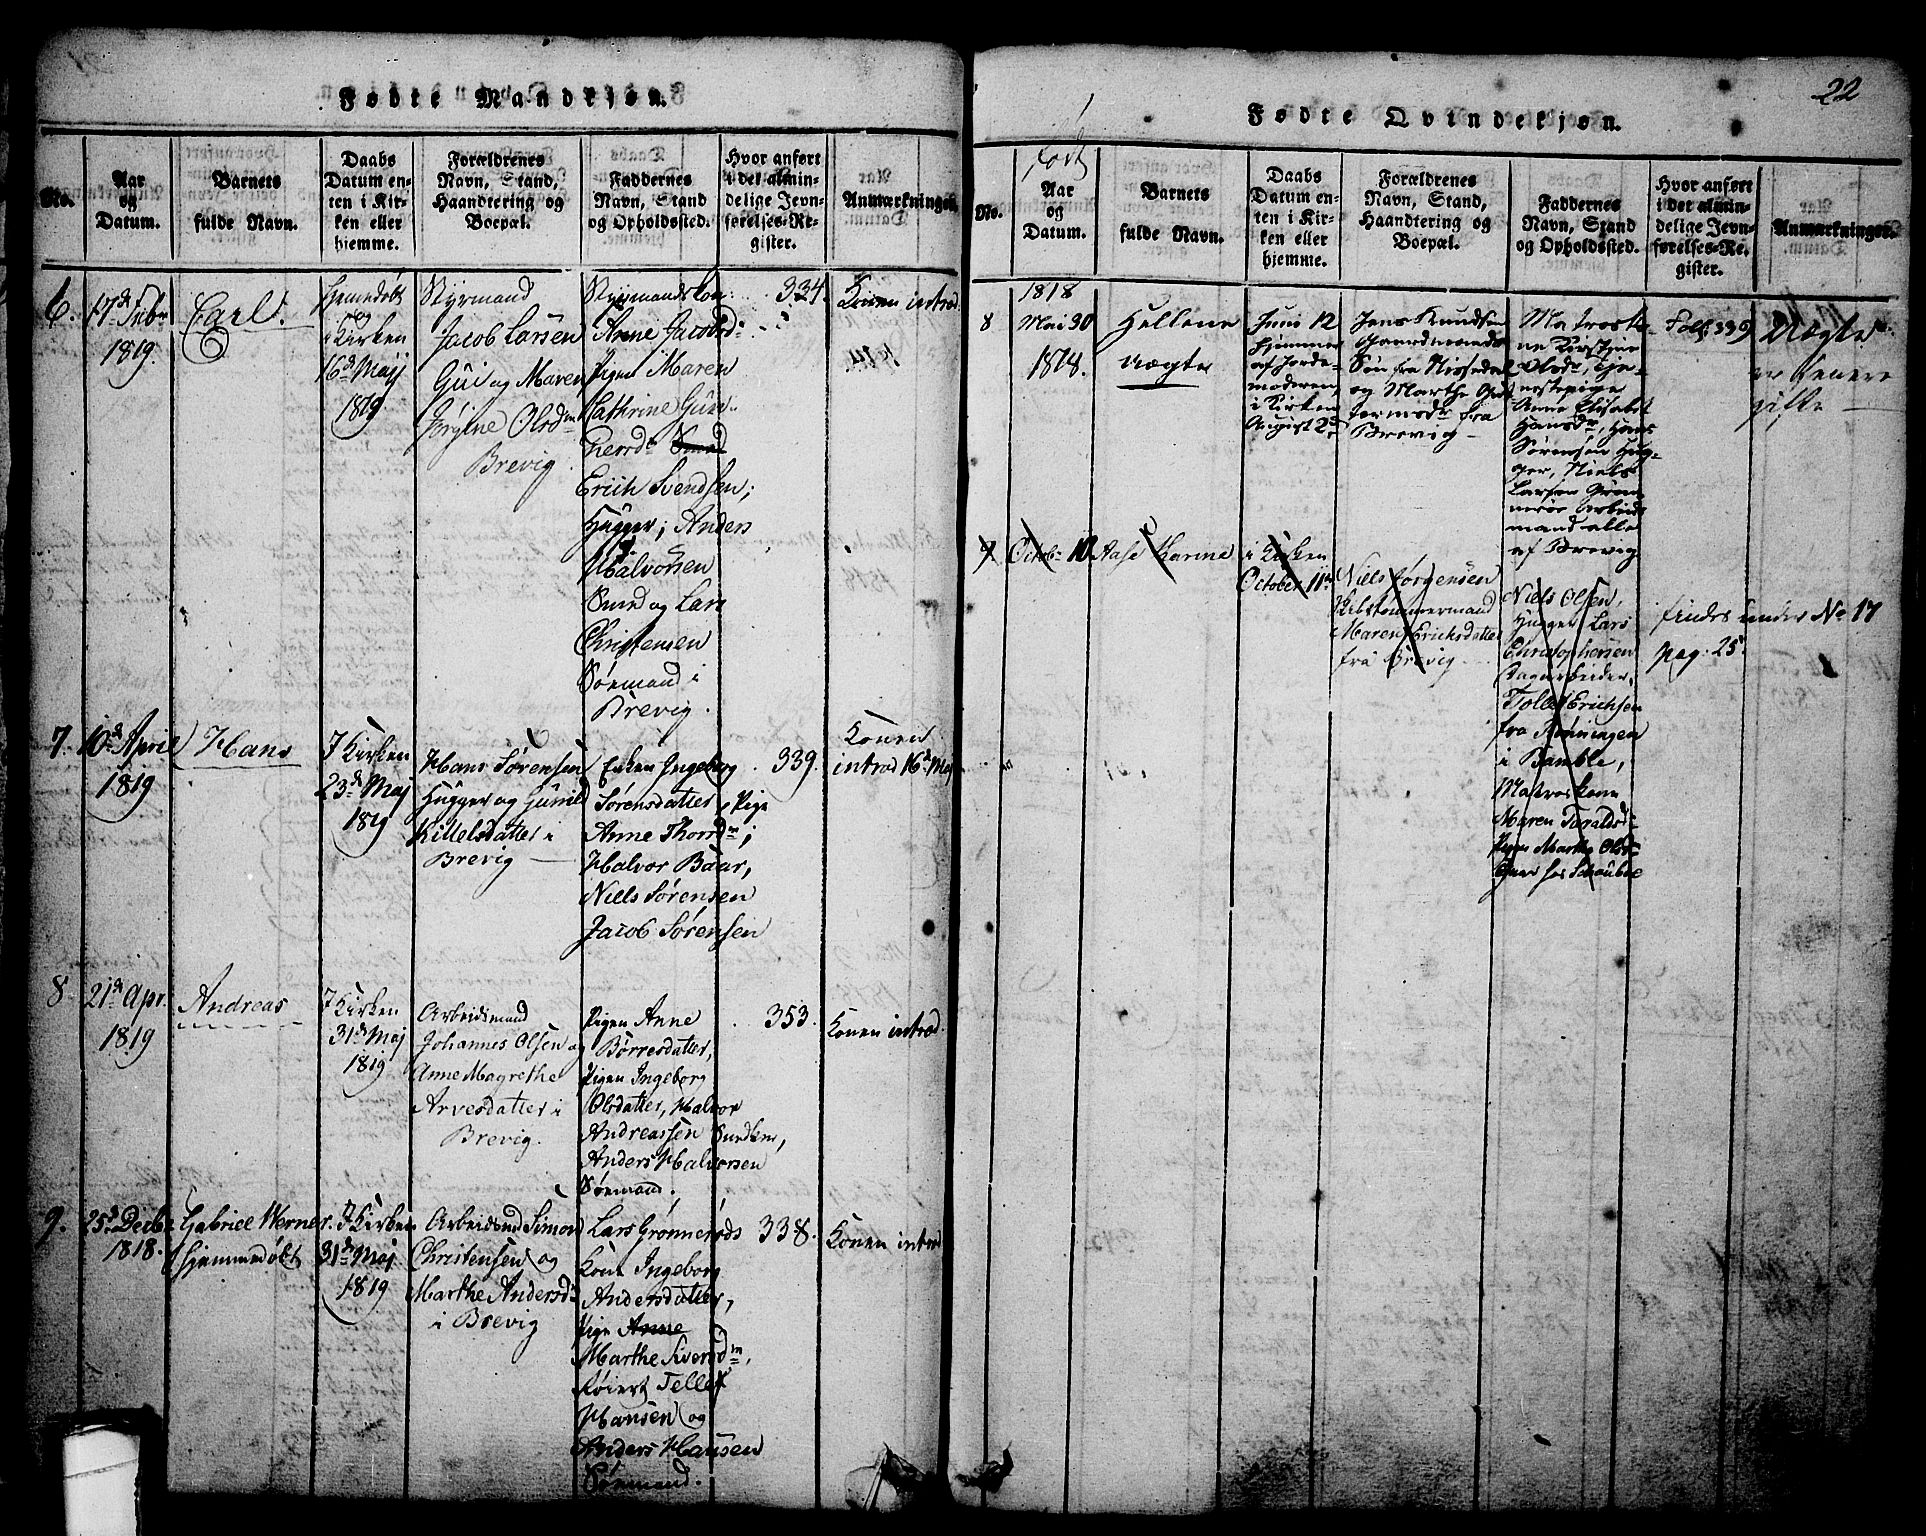 Fødte Mandkjøn.
No.
Aar
og
Datum.
Barnets
fulde Navn.
Daabs
Datum en-
ten i Kir-
ken eller
hjemme.
Forældrenes
Navn, Stand,
Haandtering og
Boepæl.
Faddernes
Navn, Stand
og Opholdssted.
Hvor anført
i det almin-
delige Jevn-
førelses-Re-
gister.
Anmærkninger.
6.
17de Febr
1819.
Carl.
Hjemedøbt
og
i Kirken
16de Maj
1819
Styrmand
Jacob Larsen
Gui og Maren
Jørgine Olsdn
Brevig.
Styrmandskon
Anne Jacobsd:
Pigen Maren
Cathrine Gun-
Erich Svendsen;
Hugger; Anders
Halvorsen
Sund og Lars
Christensen
Sømand i
Brevig.
334.
Konen introd
7.
10de April
1819
Hans
I Kirken
23de Maj
1819
Hans Sørensen
Hugger og Gunild
Kittelsdatter i
Brevig
Enken Ingeborg
Sørensdatter, Pige
Anne Thorsdn;
Halvor Baar,
Niels Sørensen
Jacob Sørensen
339.
Konen
introd 16de Maj
8
21de Apr.
1819
Andreas
I Kirken
31de Maj
1819
Arbeidsmand
Johannes Olsen og
Anne Magrethe
Arvesdatter i
Brevig.
Pigen Anne
Børresdatter,
Pigen Ingeborg
Olsdatter, Halvor
Andreassen Sundken,
Anders Halvorsen
Sømand.
353.
Konen introd.
9.
25de Decbr
1818.
Gabriel Werner.
Hjemmedøbt
I Kirken
31de Maj
1819
Arbeidsmd Simon
Christensen og
Marthe Andersd
i Brevig
Lars Grønnerøds
Kone Ingeborg
Andersdatter,
Pige Anne
Marthe Siversdn,
Tellef
Hansen og
Anders Hansen
Sømand.
338.
Konen introd
22
Fødte Qvindekjøn.
født
No.
Aar
og
Datum.
Barnets
fulde Navn.
Daabs
Datum en-
ten i Kir-
ken eller
hjemme.
Forældrenes
Navn, Stand,
Haandtering og
Boepæl.
Faddernes
Navn, Stand
og Opholdssted.
Hvor anført
i det almin-
delige Jevn-
førelses-Re-
gister.
Anmærkninger.
1818
8
Mai 30
1818.
Hellene
uægte
Juni 12
hjemme
af Jorde-
moderen,
i Kirken
August 2d
Jens Knudsen
Gaardmands
Søn fra Nissedal
og Marthe Gut
tormsdr fra
Brevig
Matrosko-
ne Kirstine
Olsdr, Tje-
nestepige
Anne Elisabet
Hansdr, Hans
Sørensen Hug-
ger, Niels
Larsen Grøn-
nerøe Arbeids
mand alle
af Brevig
Fol: 339
Uægte
er senere
gifte
9
Octobr 10
Aase Karine
i Kirken
October 11te
Niels Jørgensen
Skibstømmermand
Maren Erichsdatter
fra Brevig
Niels Olsen,
Hugger Lars
Christophersen
Dagarbeider,
Tollef Erichsen
fra Rønningen
i Bamble,
Matroskone
Maren Toraldsd:
Pigen Marthe Olsd:
findes under No 17
pag. 25.